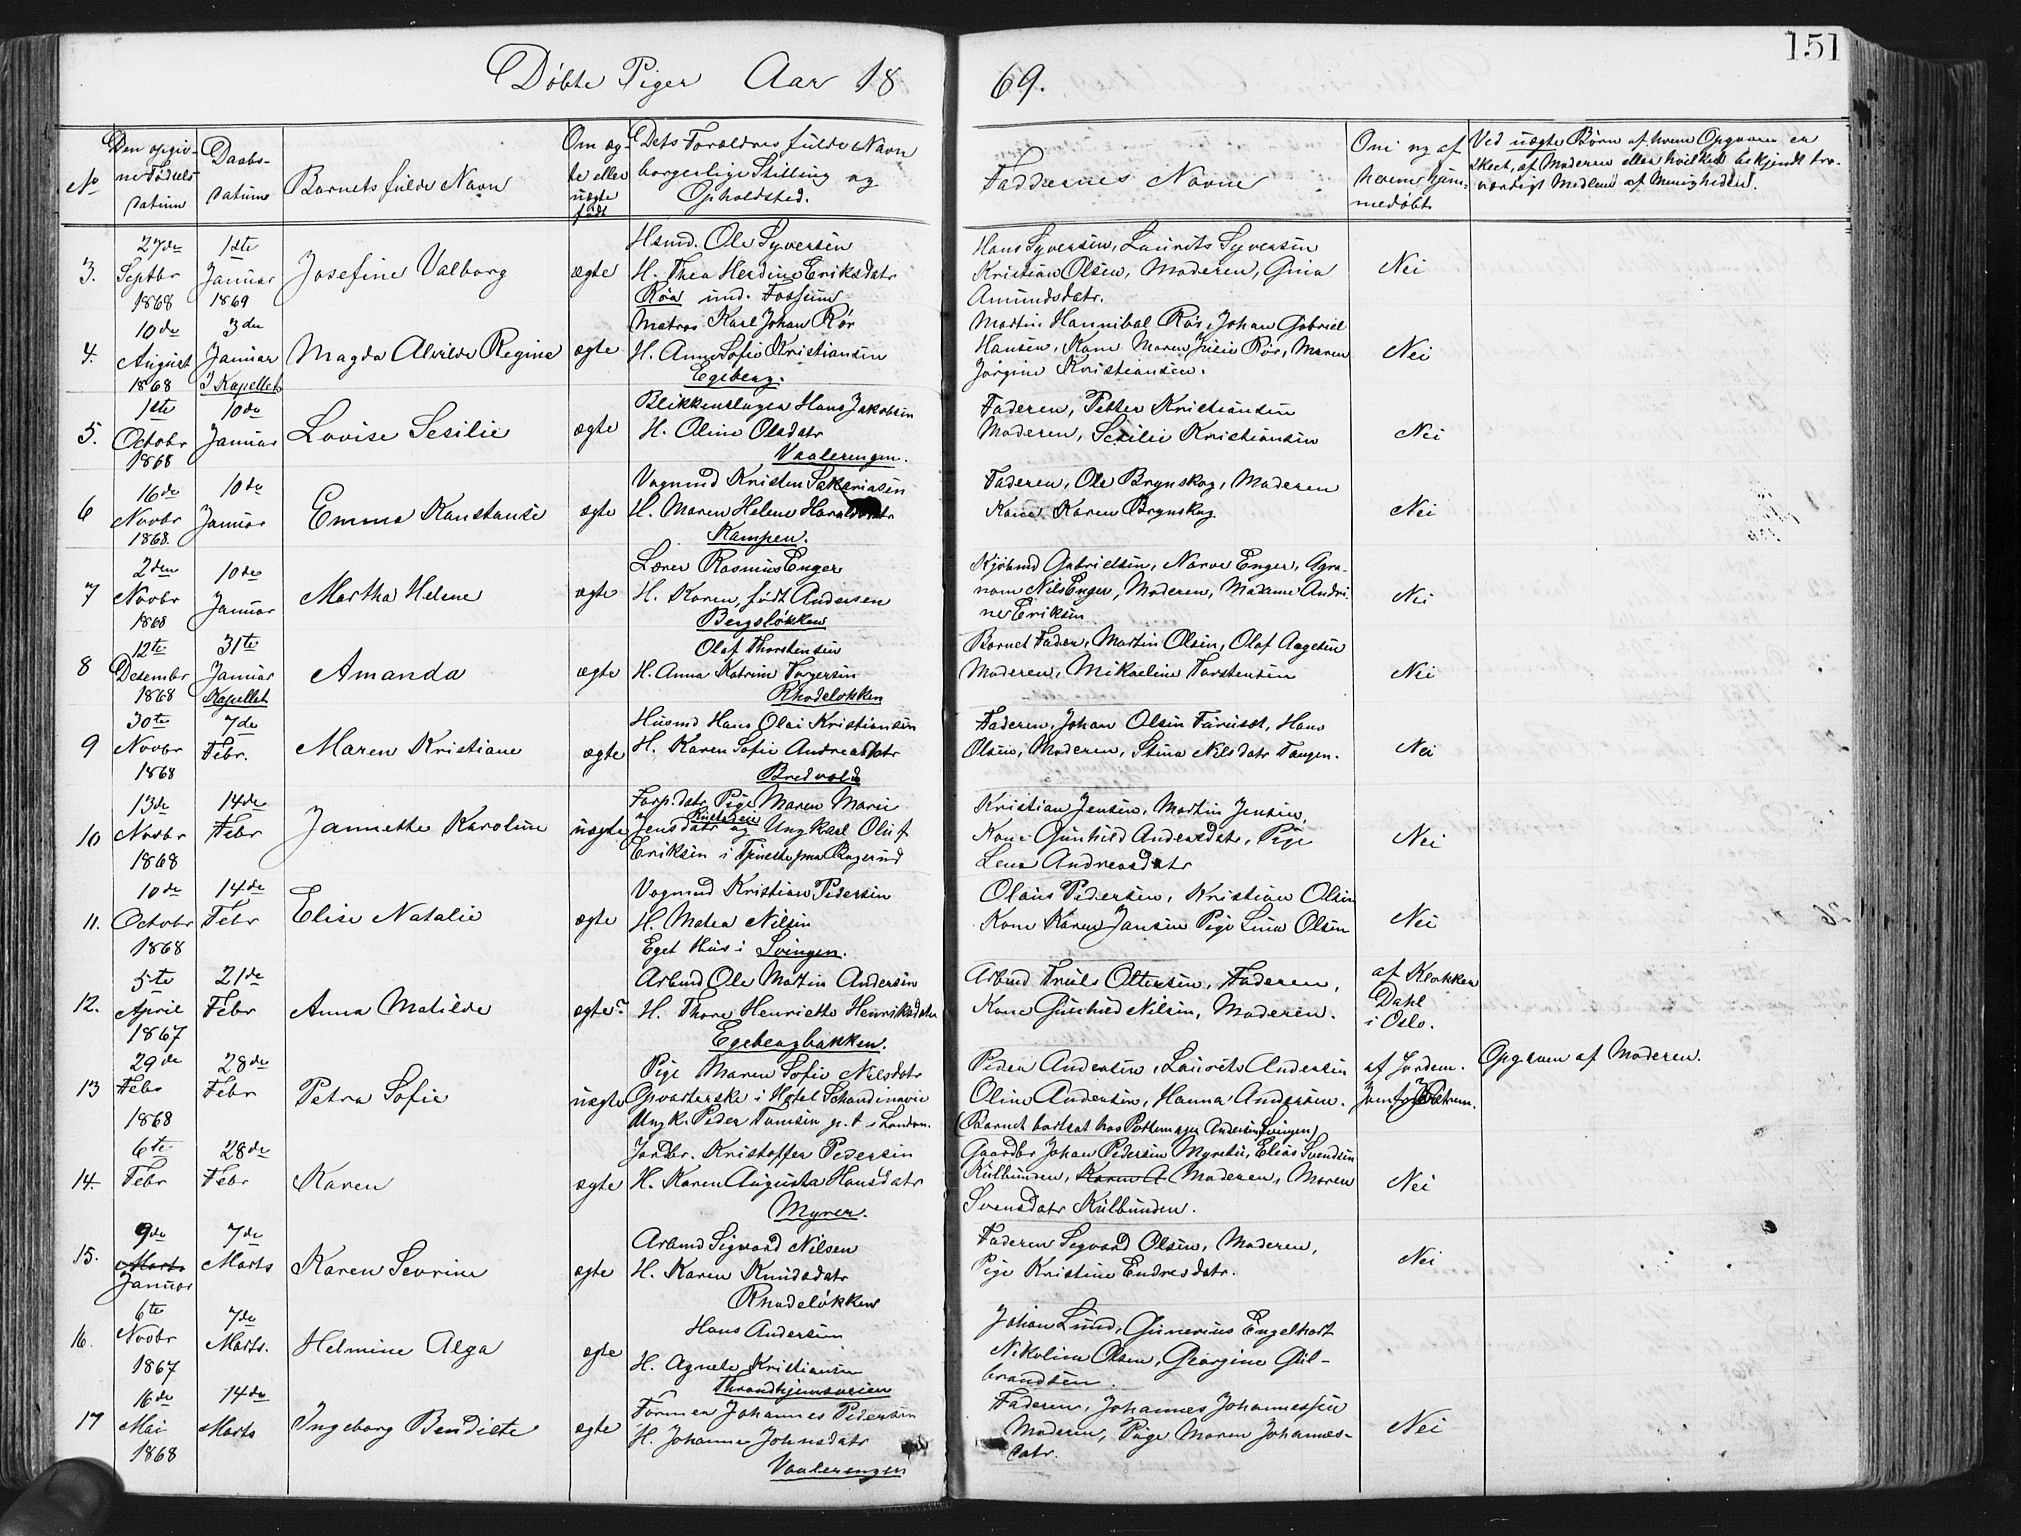 151
Døbte Piger Aar 18
69.
No
Den opgiv-
ne Fødsels
datum
Daabs-
datum
Barnets fulde Navn
Om æg-
te eller
uægte
født
Dets Forældres fulde Navn
borgerlige Stilling og
Opholdsted.
Faddernes Navne
Om og af
hvem hjem-
medøbt
Ved uægte Børn af hvem Opgaven er
skeet, af Moderen eller hvilket bekjendt tro-
værdigt Medlem af Menigheden.
3. 27de Septbr 1868
1ste Januar 1869
Josefine Valborg
ægte
Hsmd. Ole Syversen
H. Thea Herdine Eriksdatr
Røa und. Fossum
Hans Syversen, Laurits Syversen
Kristian Olsen, Moderen, Gina
Amundsdatr.
Nei
4. 10de August 1868
3die Januar I Kapellet
Magda Alvilde Regine
ægte
Matros Karl Johan Rør
H. Anne Sofie Kristiansen
Egeberg.
Martin Hannibal Rør, Johan Gabriel
Hansen, Kone Maren Julie Rør, Maren
Jørgine Kristiansen.
Nei
5. 1ste Octobr 1868
10de Januar
Lovise Sesilie
ægte
Blikkenslager Hans Jakobsen
H. Oline Olsdatr
Vaalerengen.
Faderen, Petter Kristiansen
Moderen, Sesilie Kristiansen
Nei
6 16de Novbr 1868.
10de Januar
Emma Konstanse
ægte
Vognmd Kristen Sakariasen
H. Maren Helene Haraldsdatr
Kampen.
Faderen, Ole Brynskog, Moderen
Kone Karen Brynskog
Nei
7 2den Novbr 1868
10de Januar
Martha Helene
ægte
Lærer Rasmus Enger
H. Karen, født Andersen
Bergsløkken
Kjøbmd Gabrielsen, Narve Enger, Agro-
nom Nils Enger, Moderen, Madame Andri-
ne Eriksen
Nei
8 12te Desembr 1868
31te Januar Kapellet
Amanda
ægte
Olaf Thorstensen
H. Anna Katrine Torgersen
Rhodeløkken
Barnets Fader, Martin Olsen, Olaf Aagesen
Moderen, Mikaeline Torstensen
Nei
9 30te Novbr 1868
7de Febr.
Maren Kristiane
ægte
Husmd Hans Olai Kristiansen
H. Karen Sofie Andreasdatr
Bredvold
Faderen, Johan Olsen Faruset, Hans
Olsen, Moderen, Stina Nilsdatr Tangen.
Nei
10 13de Novbr 1868
14de Febr
Jannette Karoline
uægte
Forp. datr Pige Maren Marie
Jensdatr og Ungkarl Oluf
Eriksen i Tjeneste paa Bogerud
Kristian Jensen, Martin Jensen,
Kone Gunhild Andersdatr, Pige
Lena Andreasdatr
Nei
11. 10de Octobr 1868
14de Febr
Elise Natalie
ægte
Vognmd Kristian Pedersen
H. Matea Nilsen
Eget Hus i Svingen.
Olaus Pedersen, Kristian Olsen
Kone Karen Jansen Pige Lina Olsen
Nei
12. 5te April 1867
21de Febr
Anna Matilde
ægte
Arbmd Ole Martin Andersen
H. Thora Henriette Henriksdatr
Egebergbakken.
Arbmd Truls Ottersen, Faderen,
Kone Gunhild Nilsen, Moderen.
af Klokker
Dahl
i Oslo.
13 29de Febr 1868
28de Febr
Petra Sofie
uægte
Pige Maren Sofie Nilsdatr
Opvarterske i Hotel Skandinavie
Ungk. Peder Tomsen p. t. i London.
Peder Andersen, Laurits Andersen
Oline Andersen, Hanna Andersen.
(Barnet bortsat hos Pottemager Andersen Svingen)
af Jordem.
Opgaven af Moderen.
14. 6te Febr
28de Febr
Karen
ægte
Jordbr. Kristoffer Pedersen
H. Karen Augusta Hansdatr
Myrer.
Gaardbr Johan Pedersen Myrstu, Elias Svendsen
Kulbunden, Karen A Moderen, Maren
Svensdatr Kulbunden.
Nei
15. 9de Marts Januar
7de Marts
Karen Sevrine
ægte
Arbmd Sigvard Nilsen
H. Karen Knudsdatr
Rhodeløkken
Faderen Segvard Olsen, Moderen,
Pige Kristine Endresdatr.
Nei
16. 6te Novbr 1867
7de Marts.
Helmine Alga
ægte
Hans Andersen
H. Agnete Kristiansen
Throndhjemsveien
Johan Lund, Gunerius Engelhart
Nikoline Olsen, Georgine Gul-
brandsen.
17 16de Mai 1868
14de Marts
Ingeborg Bendicte
ægte
Former Johannes Pedersen
H. Johanne Johnsdatr
Vaalerengen
Faderen, Johannes Johannessen
Moderen, Pige Maren Johannes-
datr.
Nei